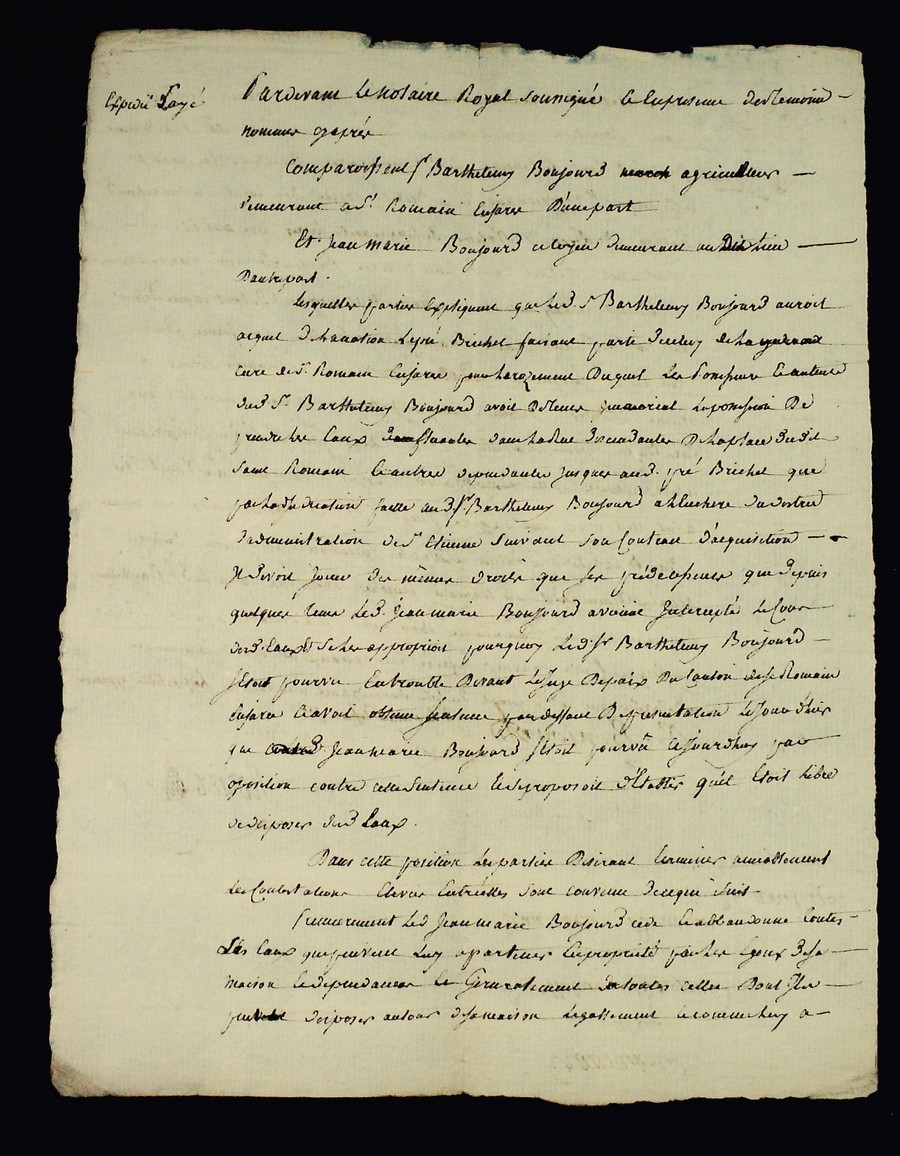 Expedié Payé
Pardevant Le notaire Royal soussigné Et En presence des Temoins
nommes cy après
Comparoissent Sr Barthelemy Boujourd agriculteur
demeurant a St Romain En jarez D'une part
Et Jean Marie Boujourd citoyen demeurant au Dit Lieu
D'autre part.
Lesquelles parties Expliquent que Led. Sr Barthelemy Boujourd auroit
acquis de la nation Le pré Brichet faisant partie de la
Cure de St Romain En jarez pour larrozement Duquel Les Possesseurs Et auteurs
dud Sr Barthelemy Boujourd avoit De tems immorial La possession De
prendre les Eaux fluantes dans la Rue Descendantes De la place dudit
Saint Romain Et autres dependantes jusques aud. pré Brichet que
par ladjudication faitte aud Sr Barthelemy Boujourd a lEnchere du district
dadministration de St Etienne Suivant Son Contrat d'acquisition
Il Devoit jouir des mêmes droits que ses prédecesseurs que Depuis
quelques tems Led. Jean marie Boujourd avoit Intercepté Le Cour
desd. Eaux Et se Les approprioit pourquoy Led. Sr Barthelemy Boujourd
sEtoit pourvu En trouble Devant Le Juge De paix Du Canton de St Romain
En jarez Et avoit obtenu sentence par deffaut De presentation Le Jour d'hier
que Led. Jean marie Boujourd sEtoit pourvu Cejourdhuy par
oposition contre cette Sentence Et se proposoit d'Etablir qu'il Etoit Libre
de disposer desd Eaux.
Dans cette position Les parties Desirant terminer amiablement
Les Contestations Elevées Entr'elles sont convenu de ce qui suit
Premierement Led Jean marie Boujourd cede Et abbandonne toutes
Les Eaux qui peuvent Luy apartenir En propriété par les Egoux de sa
maison Et dependances Et Generalement de toutes celles Dont Il
peut disposer autour de sa maison Egallement Et comme luy a